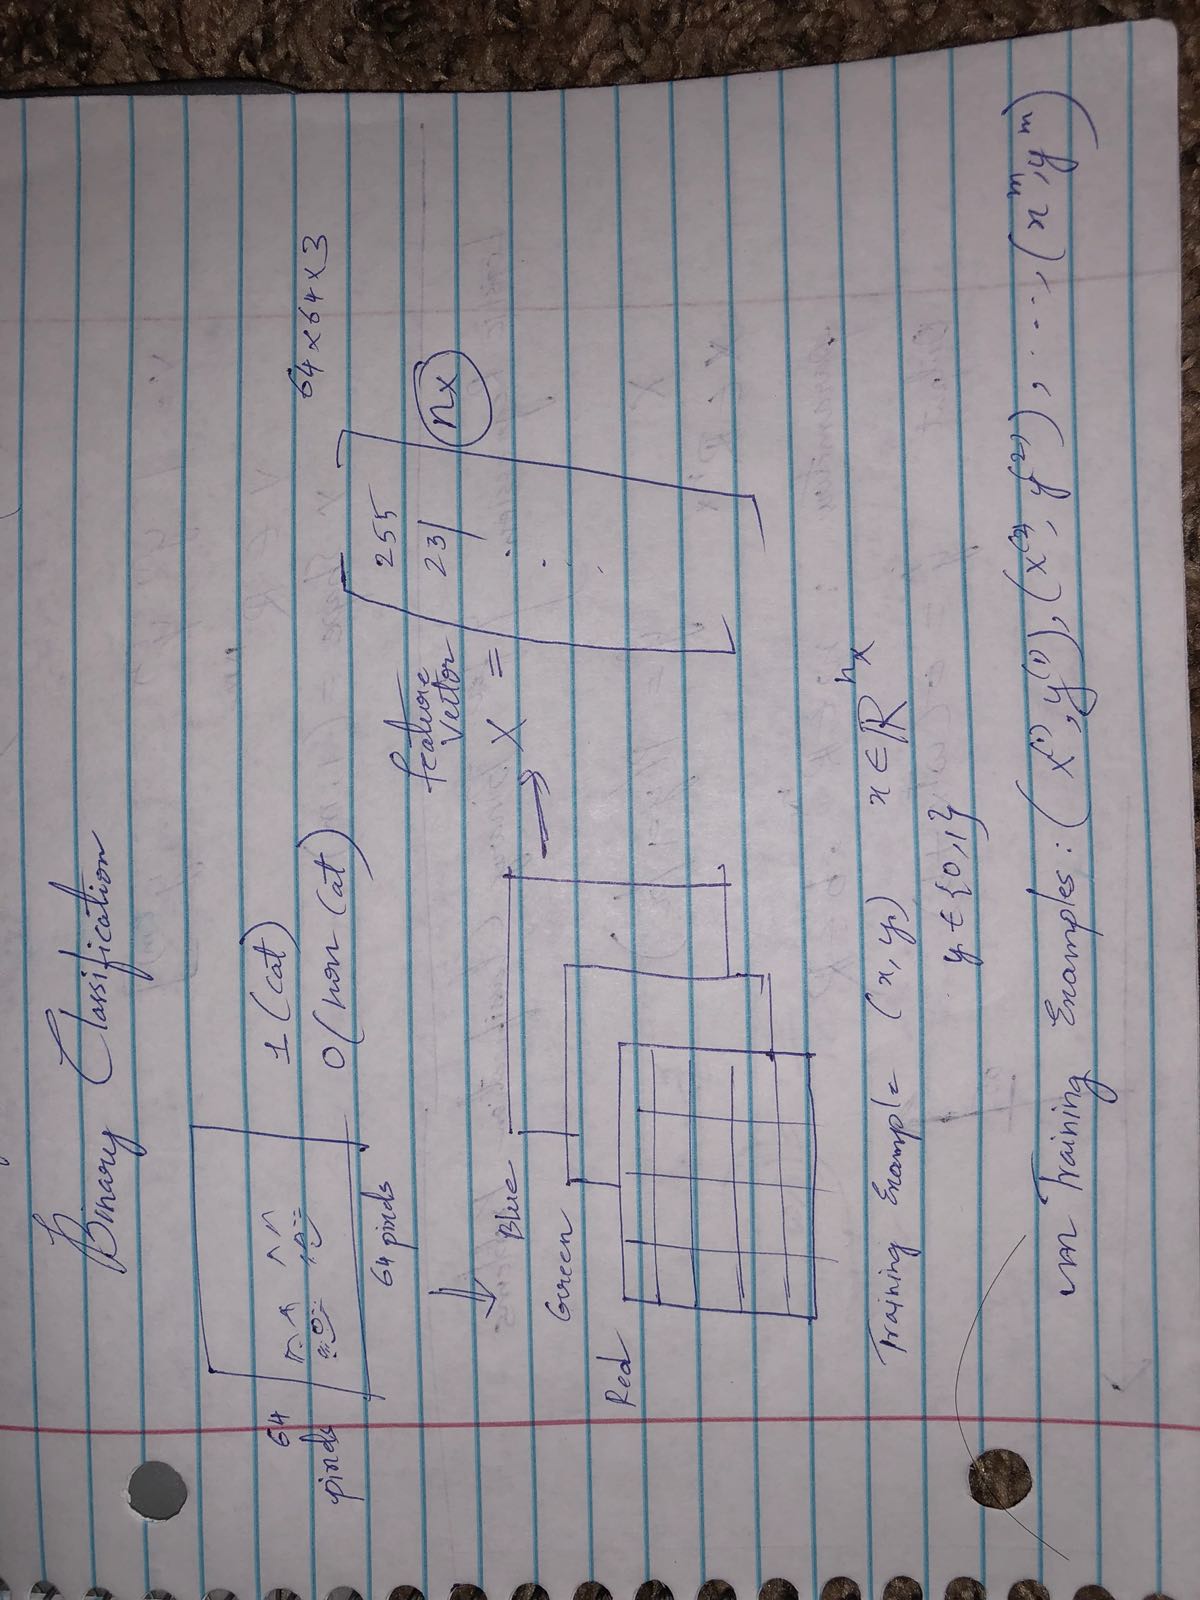 Binary Classification
64
pixels
1 (cat)
0 (non cat)
64 pixels
64 x 64 x 3
Blue
Green
Red
feature
vector
X =
255
231
nx
Training Example (x, y) x ∈ ℝ^nx
y ∈ {0,1}
m Training Examples: (x^(1), y^(1)), (x^(2), y^(2)), ...., (x^m, y^m)